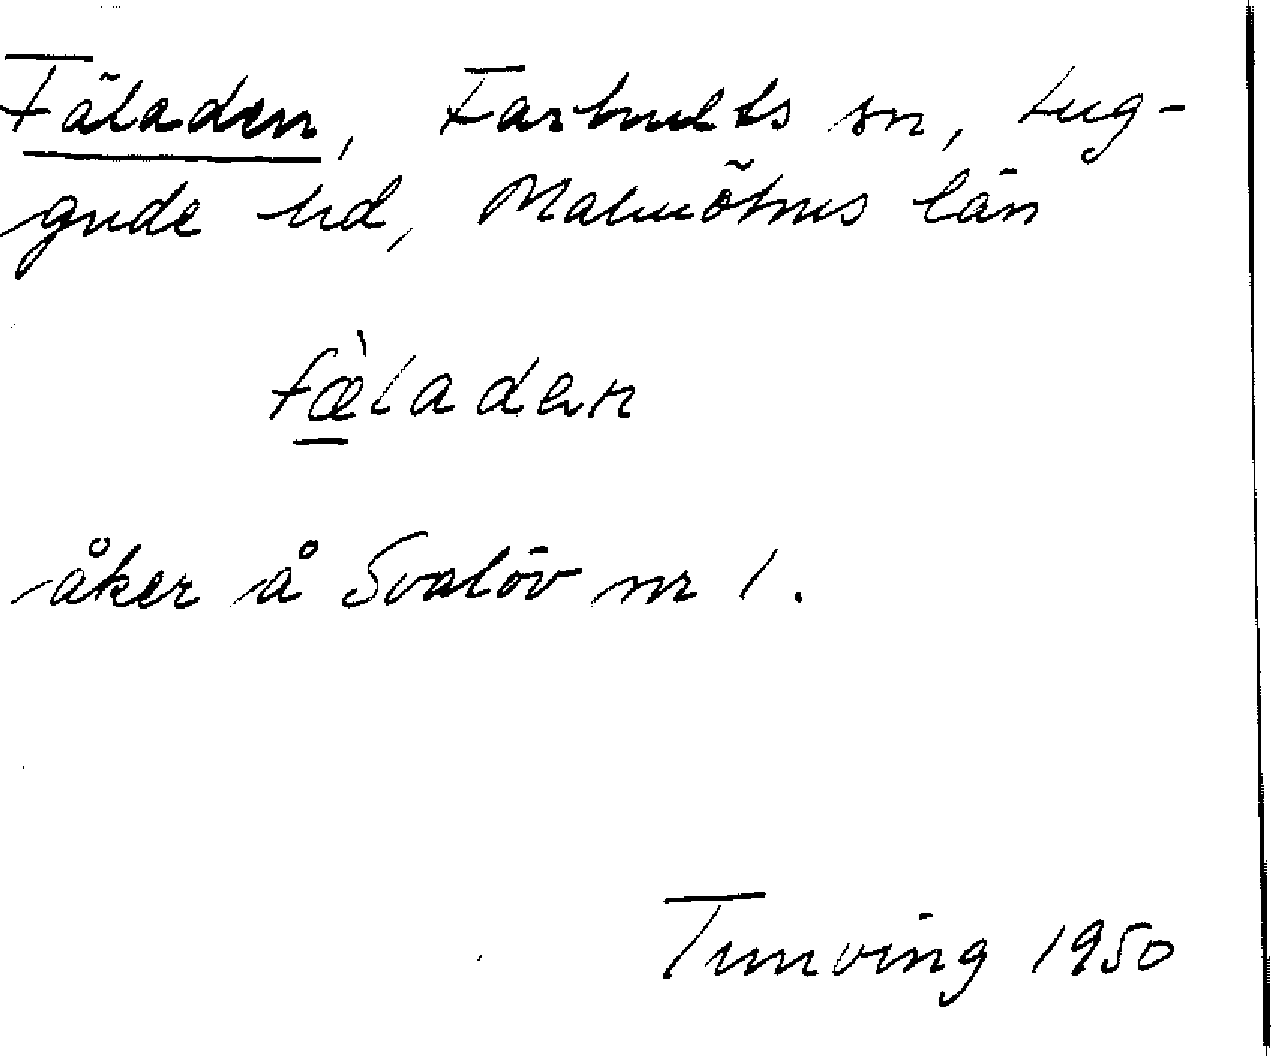 Fäladen, Farhults sn, Lug-
gude hd, Malmöhus län
fæ̀laden
åker å Svalöv nr 1.
Tunving 1950